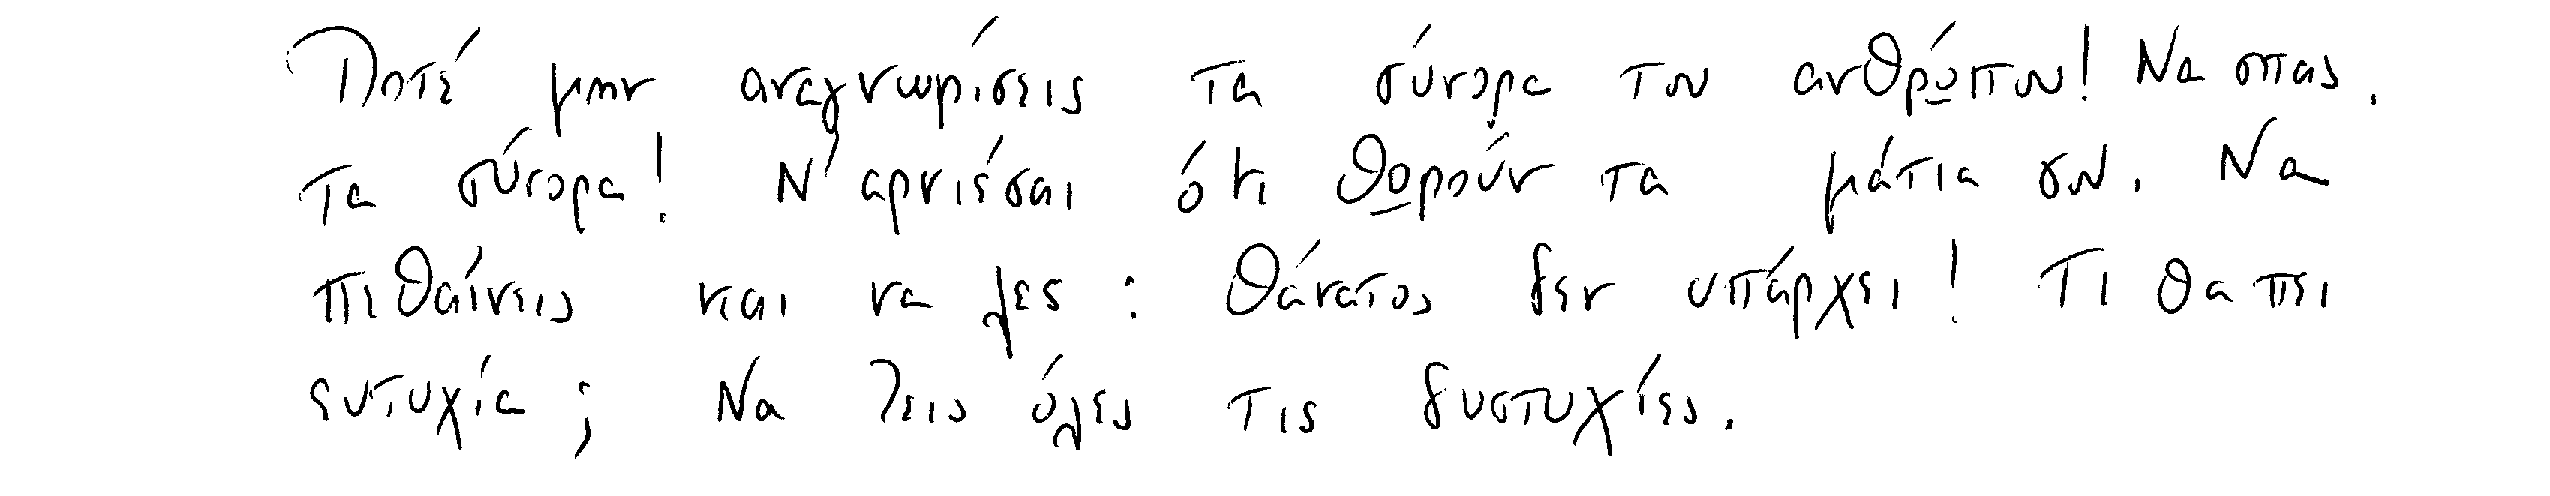 Ποτέ μην αναγνωρίσεις τα σύνορα του ανθρώπου! Να σπας.
τα σύνορα! Ν' αρνιέσαι ό,τι θωρούν τα μάτια σου. Να
πεθαίνεις και να λες: Θάνατος δεν υπάρχει! Τι θα πει
ευτυχία; Να ζεις όλες τις δυστυχίες.